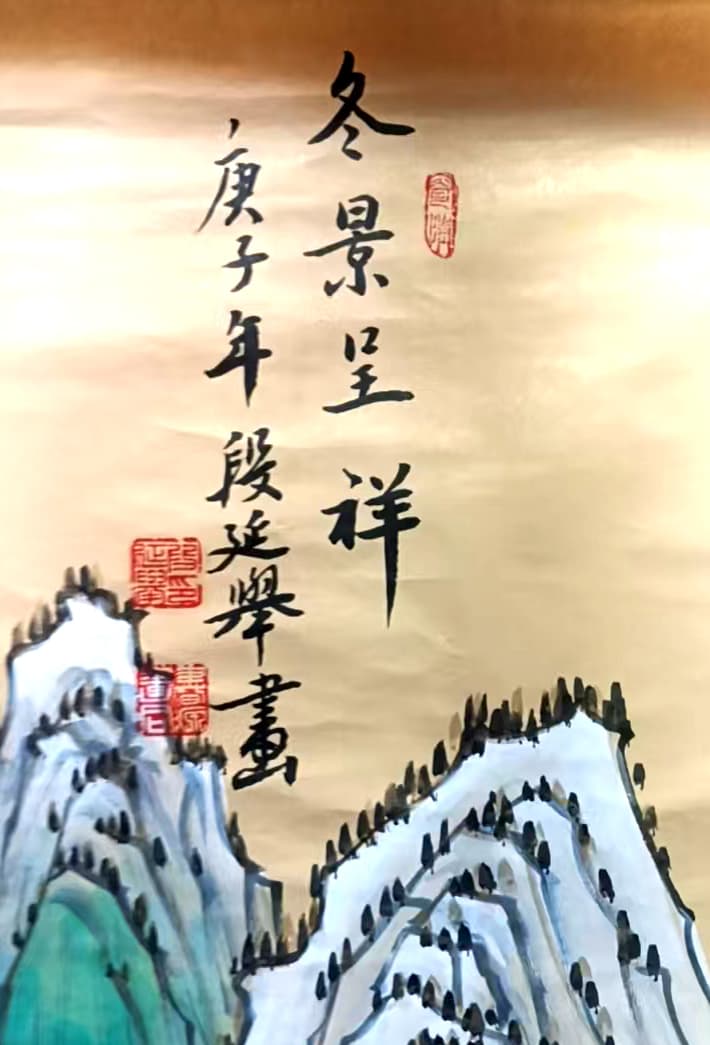 冬景呈祥
庚子年段延舉畫